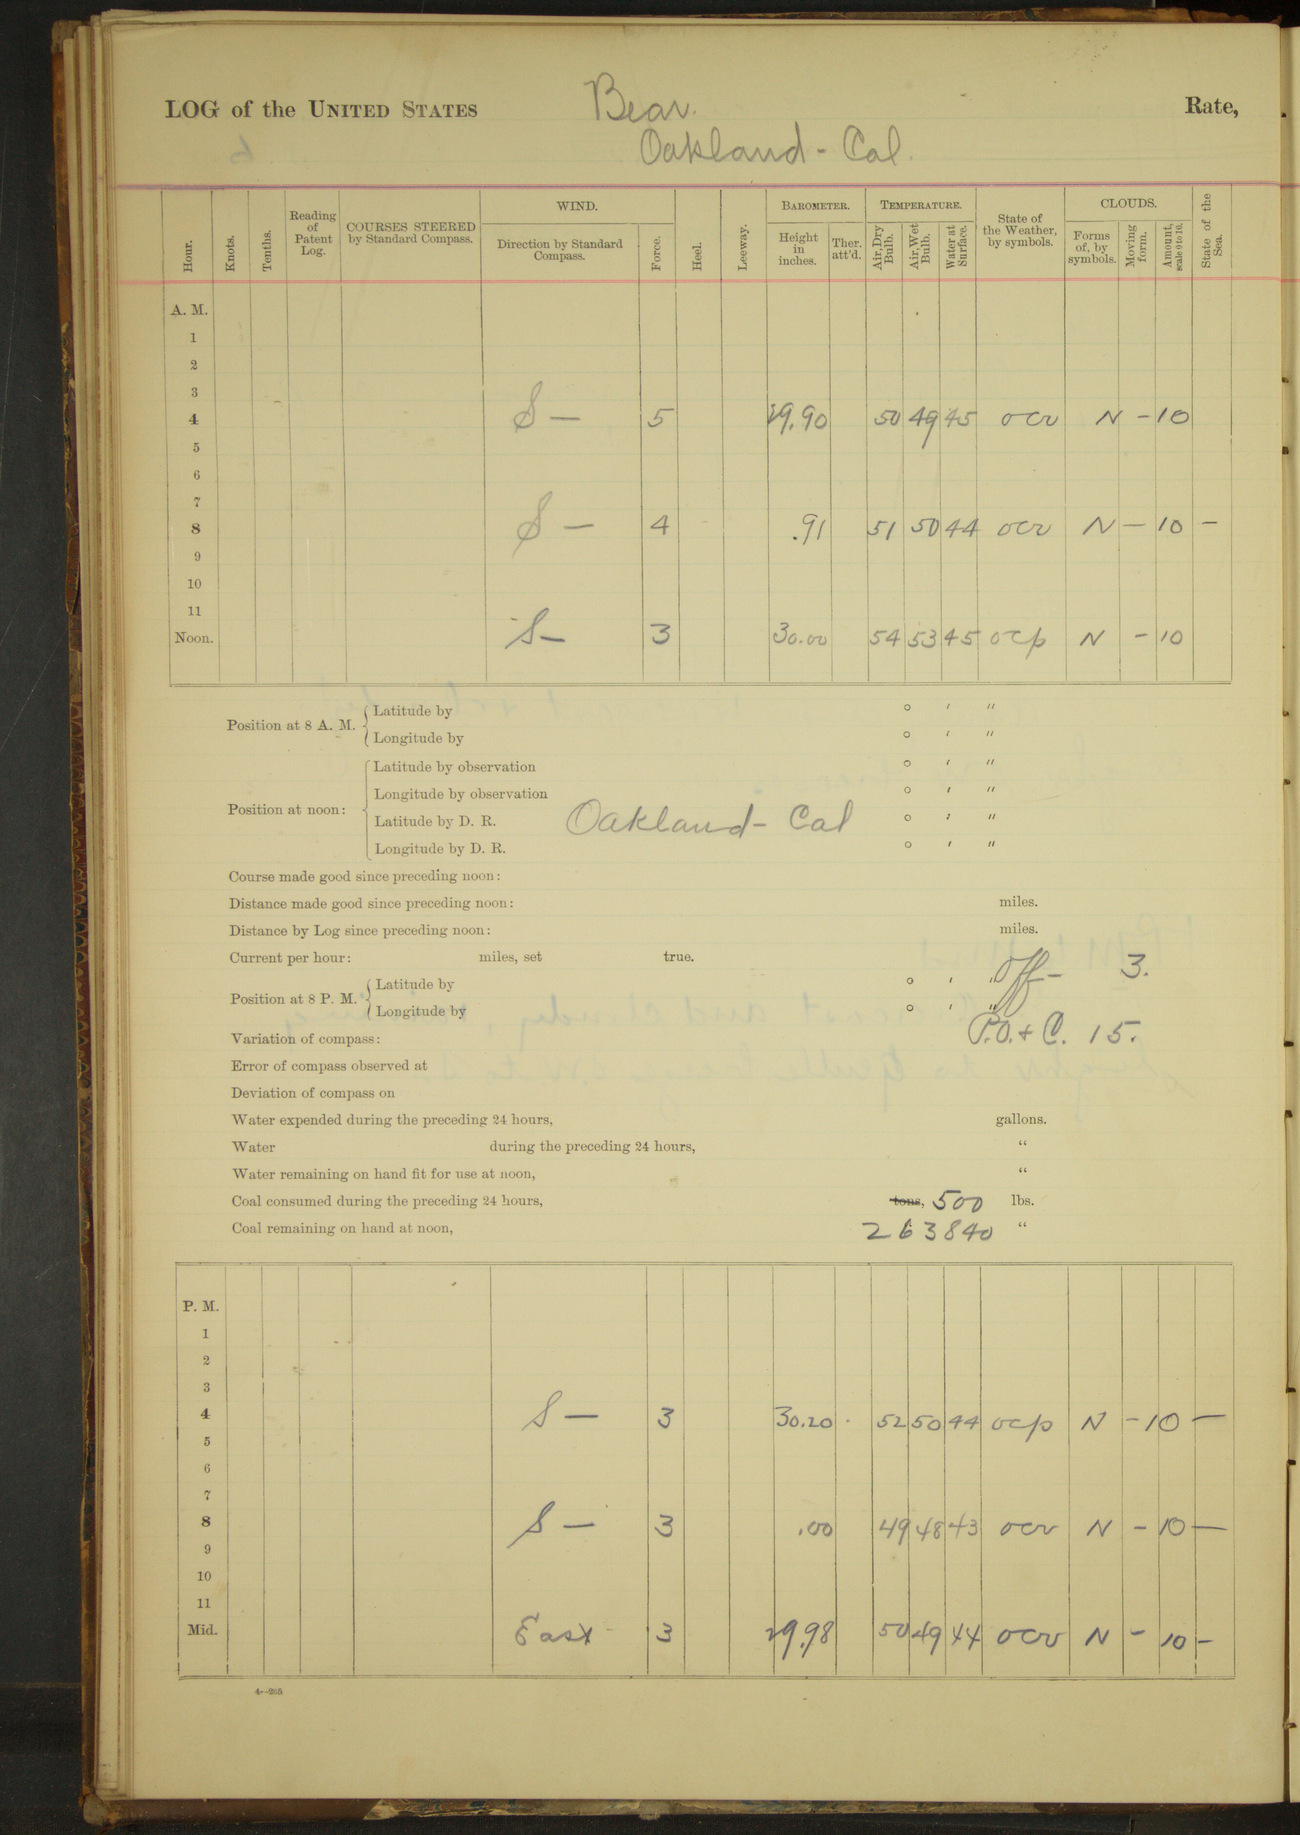 LOG of the UNITED STATES Bear. Rate,
Oakland - Cal.
Hour. Knots. Tenths. Reading of Patent Log. COURSES STEERED by Standard Compass. WIND. Direction by Standard Compass. Force. Heel. Leeway. BAROMETER. Height in inches. Ther. att'd. TEMPERATURE. Air, Dry Bulb. Air, Wet Bulb. Water at Surface. State of the Weather, by symbols. CLOUDS. Forms of, by symbols. Moving form. Amount, scale 0 to 10. State of the Sea.
A. M.
1
2
3
4 S — 5 29.90 50 49 45 ocr N - 10
5
6
7
8 S — 4 .91 51 50 44 ocr N — 10 —
9
10
11
Noon. S — 3 30.00 54 53 45 ocp N - 10
Position at 8 A. M. { Latitude by ° ′ ″
Longitude by ° ′ ″
Latitude by observation ° ′ ″
Longitude by observation ° ′ ″
Position at noon: Latitude by D. R. Oakland - Cal ° ′ ″
Longitude by D. R. ° ′ ″
Course made good since preceding noon:
Distance made good since preceding noon: miles.
Distance by Log since preceding noon: miles.
Current per hour: miles, set true.
Off — 3.
Position at 8 P. M. { Latitude by ° ′ ″
Longitude by ° ′ ″
P.O. + C. 15.
Variation of compass:
Error of compass observed at
Deviation of compass on
Water expended during the preceding 24 hours, gallons.
Water during the preceding 24 hours, “
Water remaining on hand fit for use at noon, “
Coal consumed during the preceding 24 hours, tons, 500 lbs.
Coal remaining on hand at noon, 263840 “
P. M.
1
2
3
4 S — 3 30.20 52 50 44 ocp N - 10 —
5
6
7
8 S — 3 .00 49 48 43 ocr N - 10 —
9
10
11
Mid. East 3 29.98 50 49 44 ocr N - 10 -
4--205